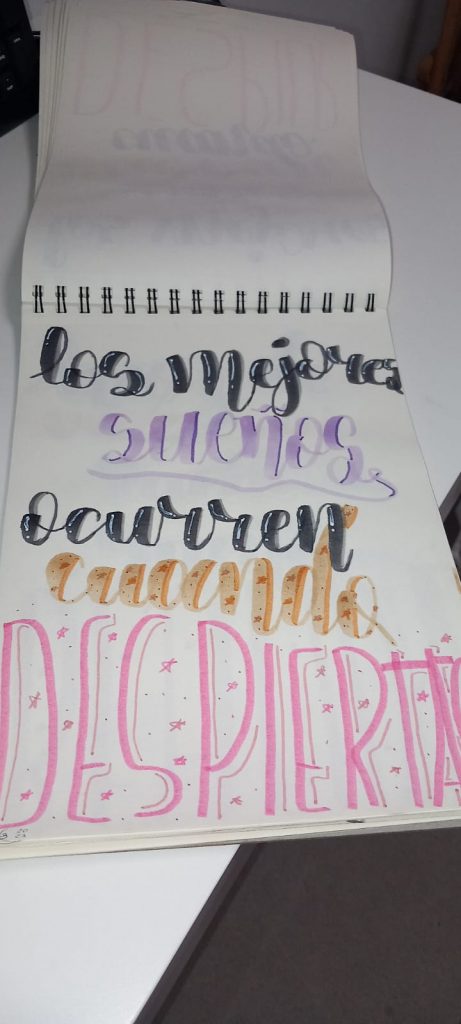 los mejores
sueños
ocurren
cuando
DESPIERTAS